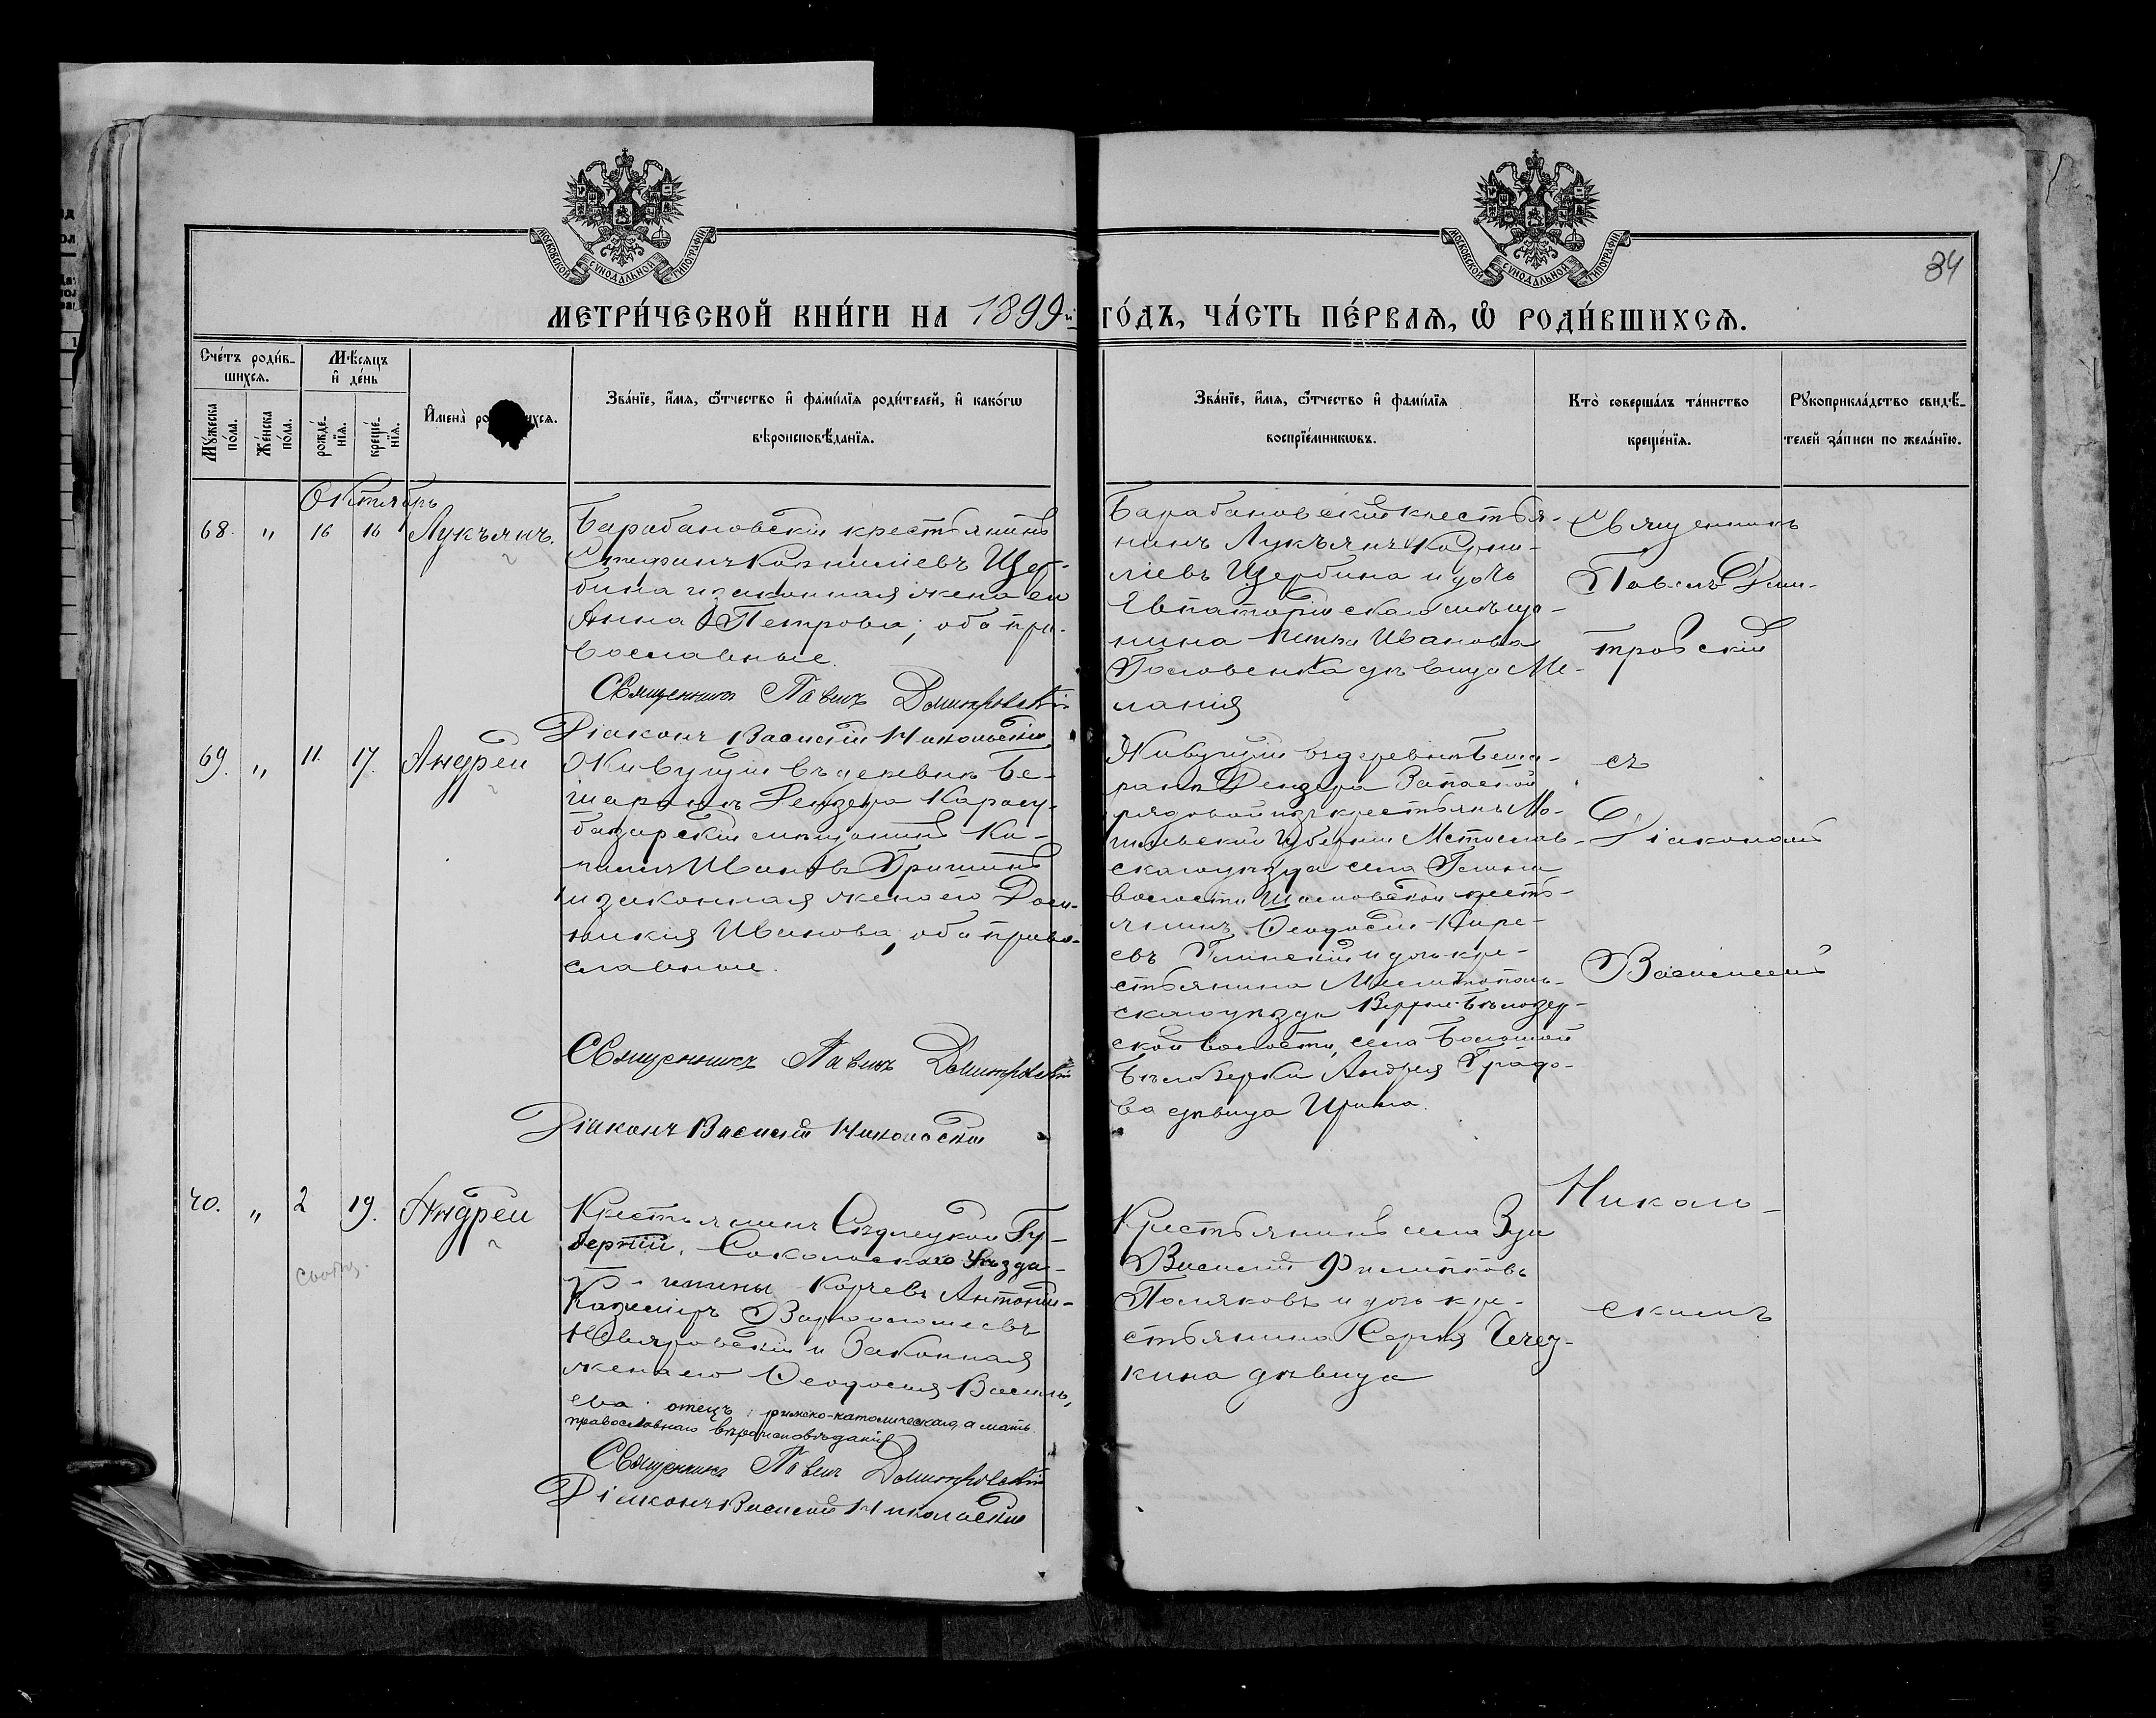 МОСКОВСКОЙ СѴНОДАЛЬНОЙ ТИПОГРАФІИ
МОСКОВСКОЙ СѴНОДАЛЬНОЙ ТИПОГРАФІИ
34
МЕТРИ́ЧЕСКОЙ КНИ́ГИ НА 1899й
ГО́ДЪ, ЧА́СТЬ ПЕ́РВАѦ, Ѽ РОДИ́ВШИХСѦ.
Сче́тъ роди́в-
шихсѧ.
Мꙋ́жеска по́ла.
Же́нска по́ла.
Мѣ́сѧцъ
и҆ де́нь
рожде́-
нїѧ.
креще́-
нїѧ.
И҆мена̀
Зва́нїе, и҆́мѧ, ѻ҆́тчество и҆ фамі́лїѧ роди́телей, и҆ како́гѡ
вѣроисповѣ́данїѧ.
Зва́нїе, и҆́мѧ, ѻ҆́тчество и҆ фамі́лїѧ
воспрїе́мникѡвъ.
Кто̀ соверша́лъ та́инство
креще́нїѧ.
Рꙋкоприкла́дство свидѣ́-
телей за́писи по жела́нїю.
Октябрь
68. " 16 16 Лукъянъ.
Барабановскій крестьянинъ
Стефанъ Корниліевъ Щер-
бина и законная жена его
Анна Петрова; оба пра-
вославные.
Священникъ Павелъ Домитровскій
Діаконъ Василій Никольскій
Барабановскій крестья-
нинъ Лукъянъ Корни-
ліевъ Щербина и дочь
Евпаторійскаго мѣща-
нина Петра Иванова
Головенка дѣвица Ме-
ланія
Священникъ
Павелъ Дми-
тровскій
69. " 11. 17. Андрей
Живущій въ деревнѣ Бе-
шаранъ Карасу-
базарскій мѣщанинъ
Ивановъ Гришинъ
и законная жена его
Иванова, оба право-
славные.
Священникъ Павелъ Домитровскій
Діаконъ Василій Никольскій
Живущій въ деревнѣ Беша-
ранъ Запасной
рядовой изъ крестьянъ Мо-
гилевской губерніи Мстислав-
скаго уѣзда села
волости кресть-
янинъ Ѳеодосій Кире-
евъ Глинскій и дочь кре-
стьянина Мелитополь-
скаго уѣзда Верхне-Бѣлозер-
ской волости, села Большой
Бѣлозерки Андрея Градо-
ва дѣвица Ирина.
съ
Діакономъ
Василіемъ
70. " 2 19. Андрей
Крестьянинъ Сѣдлецкой Гу-
берніи, Соколовскаго Уѣзда
гмины Корчевъ
Казиміръ Варѳоломеевъ
и Законная
жена его Ѳеодосія Василь-
ева. отецъ римско-католическаго, а мать
православнаго вѣроисповѣданія
Священникъ Павелъ Домитровскій
Діаконъ Василій Никольскій
Крестьянинъ села Зуи
Василій Филипповъ
Поляковъ и дочь кре-
стьянина Сергія
кина дѣвица
Николь-
скимъ